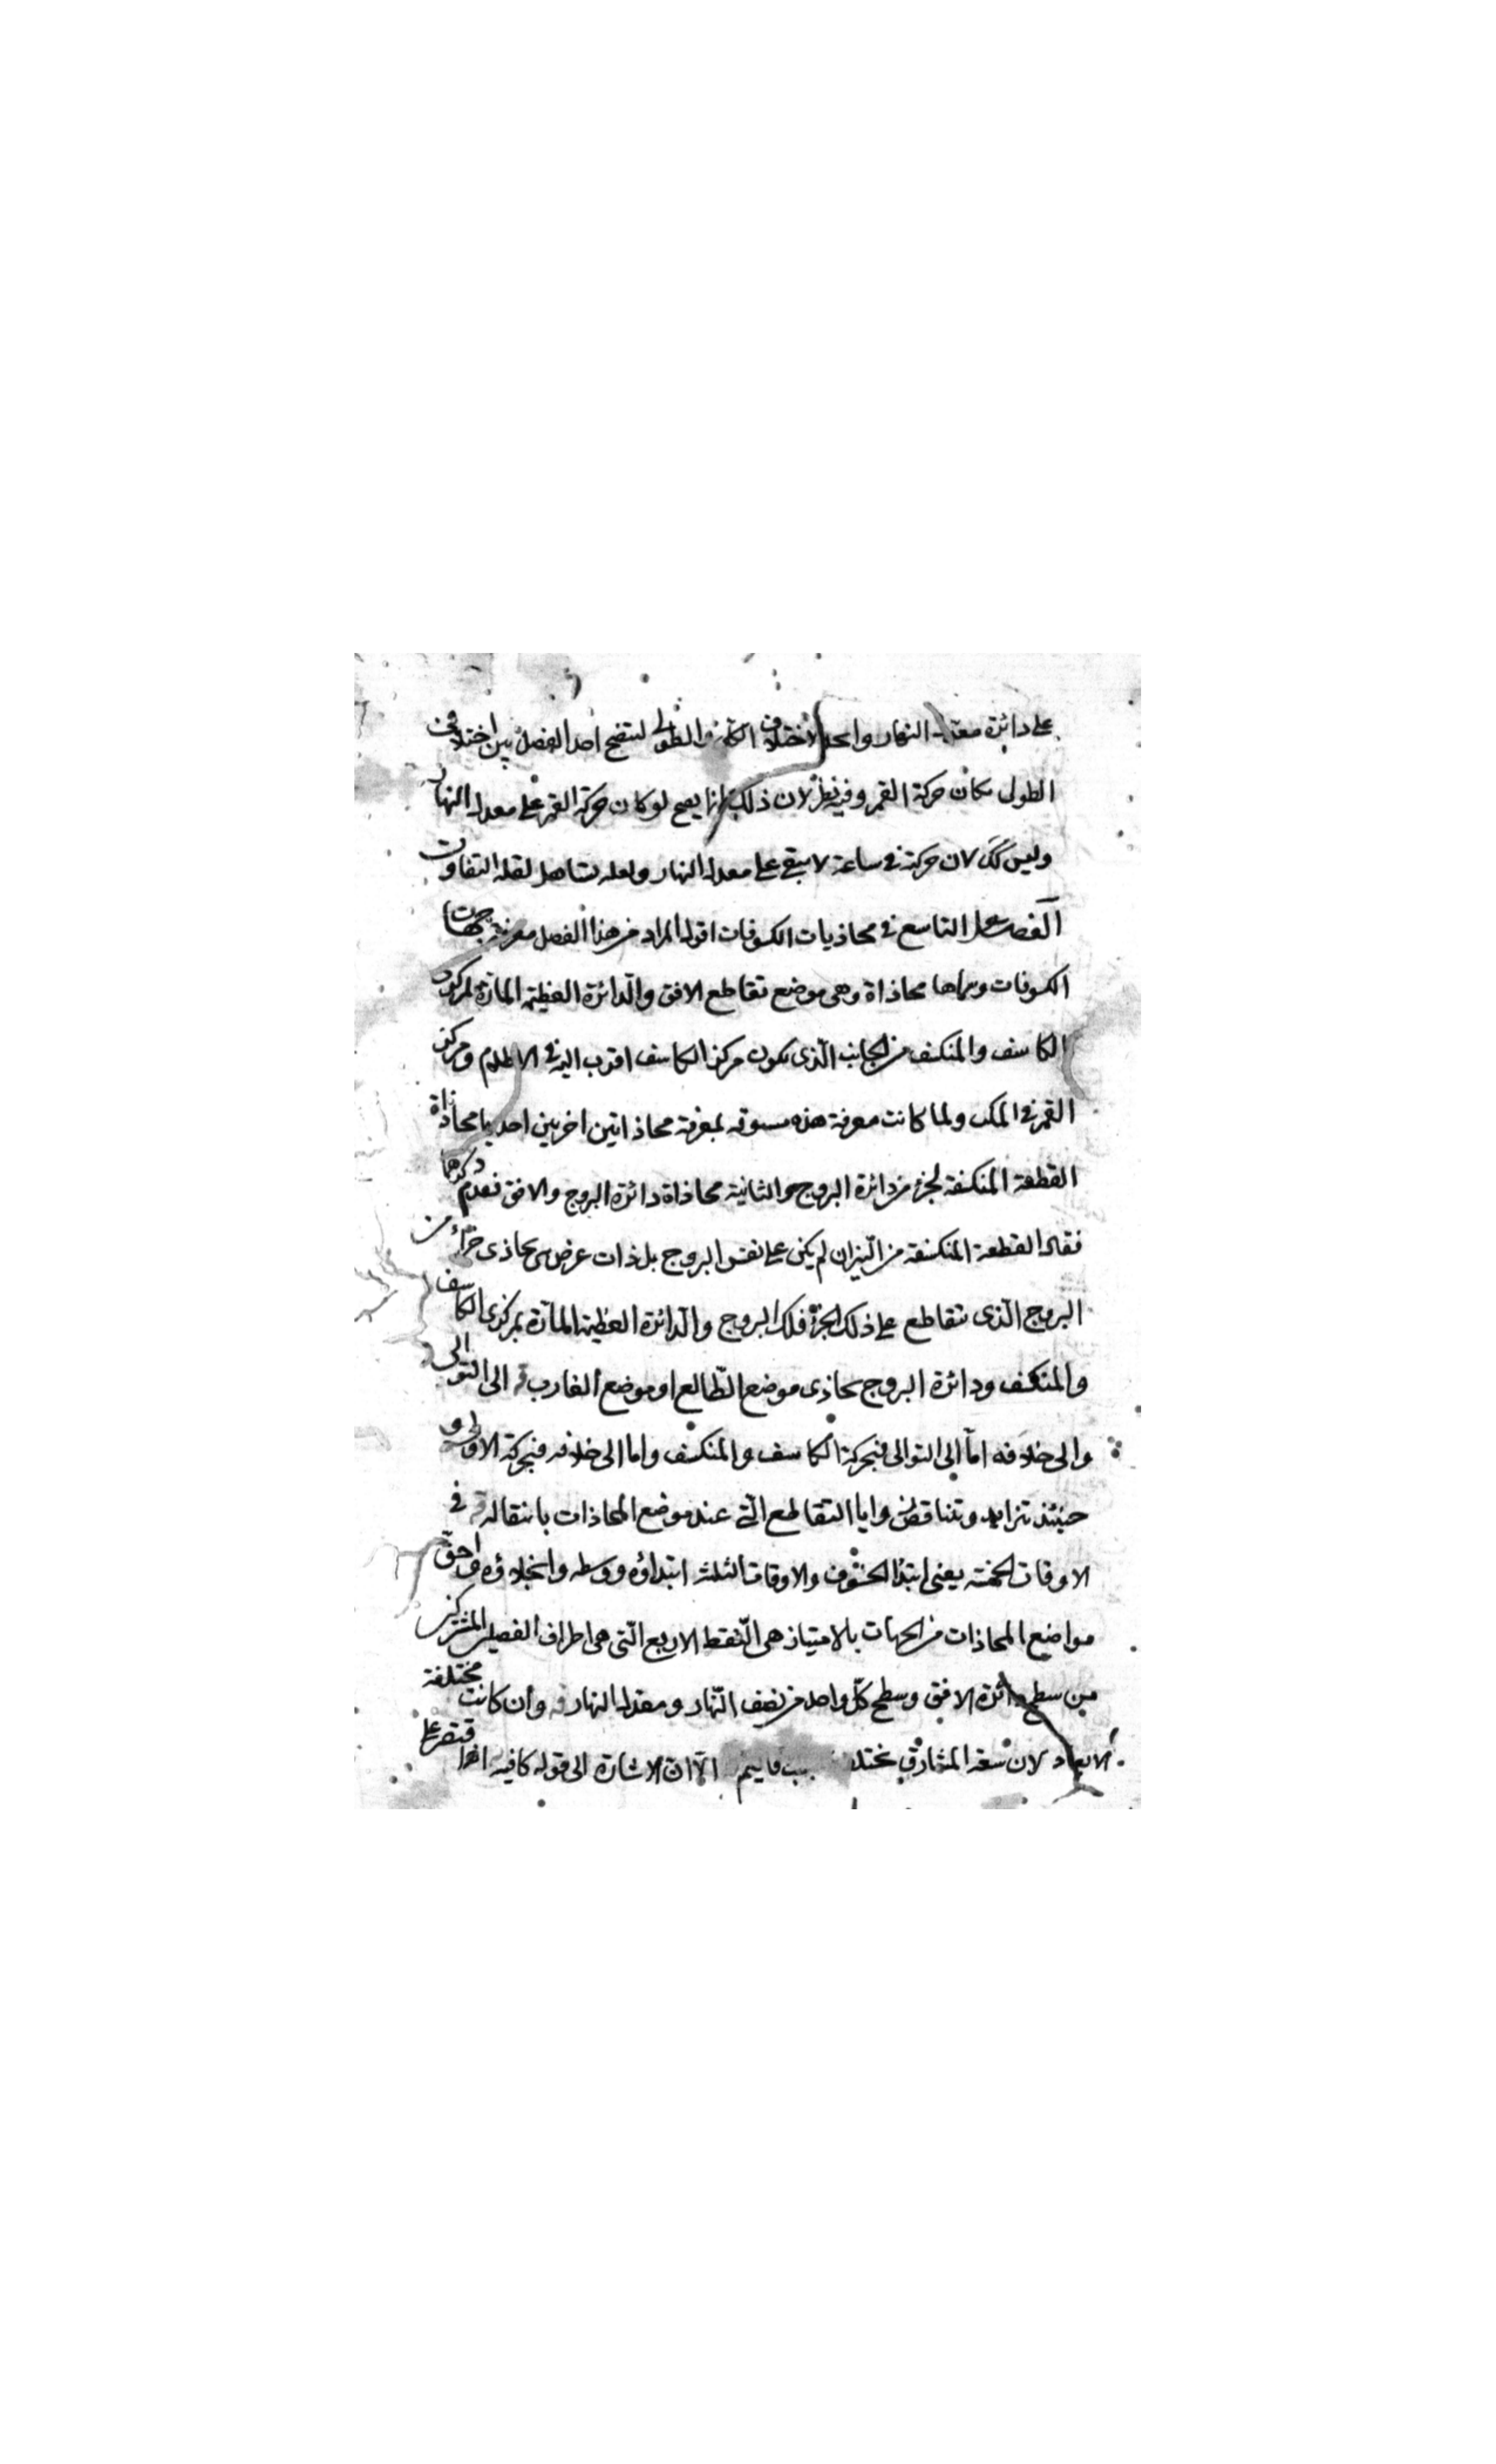 على دائرة معدل النهار واحد الاختلاف الثاني الطولي لتتضح احد الفضل بين اختلافي
الطولى مكان حركة القمر وفيه نظر لان ذلك انما يصح لو كان حركة القمر على معدل النهار
وليس كك لان حركته في ساعة لا تبقى على معدل النهار ولعله تساهل لقلة التفاوت
الفصل التاسع في محاذيات الكسوفات اقول المراد من هذا الفصل معرفة جهات
الكسوفات وسماها محاذاة وهى موضع تقاطع الافق والدائرة العظيمة المارة بمركزى
الكاسف والمنكسف من الجانب الذى يكون مركز الكاسف اقرب اليه في الاظلام ومركز
القمر في المكث ولما كانت معرفة هذه مسبوقه بمعرفة محاذاتين اخريين احديها محاذاة
القطعة المنكسفة لجزء من دائرة البروج والثانية محاذاة دائرة البروج والافق فقدم ذكرهما
فقال القطعة المنكسفة من النيران لم يكن على نفس البروج بل ذات عرض يحاذى جزأ من
البروج الذى تتقاطع على ذلك الجزء فلك البروج والدائرة العظيمة المارة بمركزى الكاسف
والمنكسف ودائرة البروج يحاذى موضع الطالع او موضع الغارب الى التوالى
والى خلافه اما الى التوالى فبحركة الكاسف والمنكسف واما الى خلافه فبحركة الاولى و
حينئذ تتزايد وتتناقص زوايا التقاطع التى عند موضع المحاذات بانتقاله في
الاوقات الخمسة يعنى ابتدا الخسوف والاوقات الثلث ابتداؤه ووسطه وانجلاؤه احق
مواضع المحاذات من الجهات بالامتياز هى النقط الاربع التى هى اطراف الفصلين المشتركين
من سطح دائرة الافق وسطح كل واحد من نصف النهار ومعدل النهار وان كانت مختلفة
الابعاد لان سعة المشارق تختلف الا ان الاشارة الى قوله كافيه